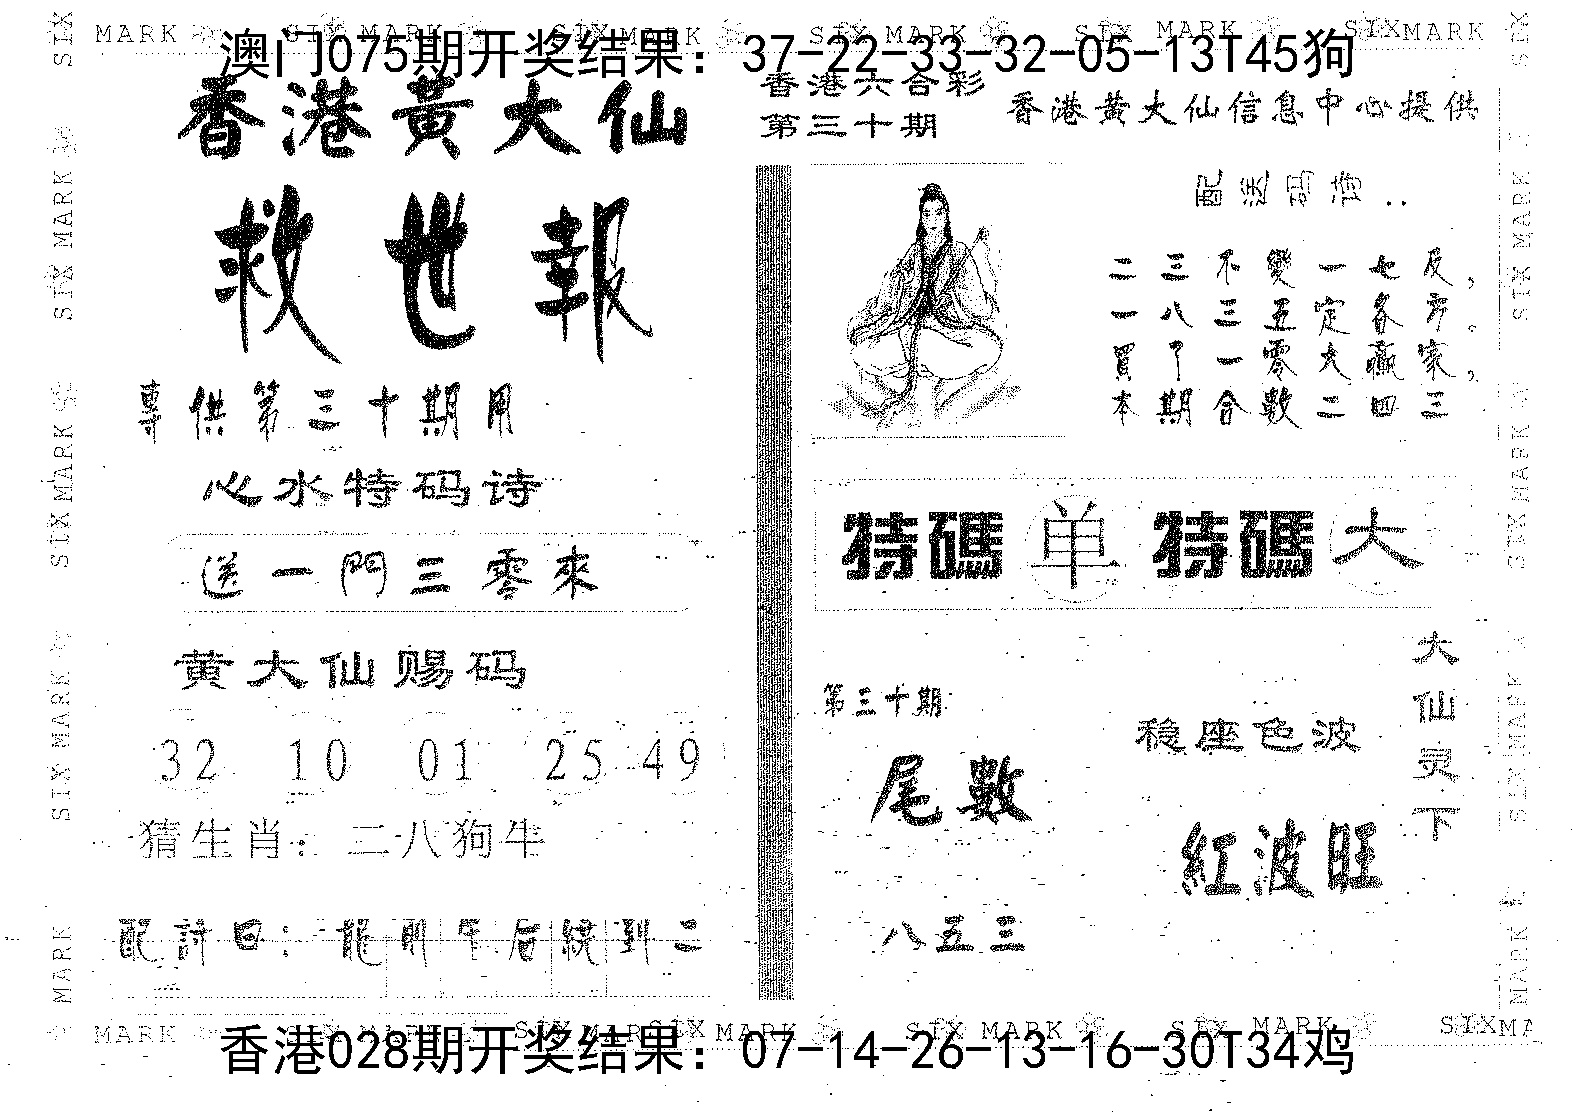 澳门075期开奖结果：37-22-33-32-05-13T45狗
香港黃大仙
救世報
專供第三十期用
心水特码诗
送一門三零來
黄大仙赐码
32 10 01 25 49
猜生肖：二八狗牛
配詩曰：龍朋午后統到二
香港六合彩
第三十期
香港黄大仙信息中心提供
配送码诗..
二三不變一七反，
一八三五定各方。
買了一零大贏家，
本期合數二四三
特碼 单 特碼 大
第三十期
尾數
八五三
稳座色波
紅波旺
大仙灵下
SIX MARK
香港028期开奖结果：07-14-26-13-16-30T34鸡